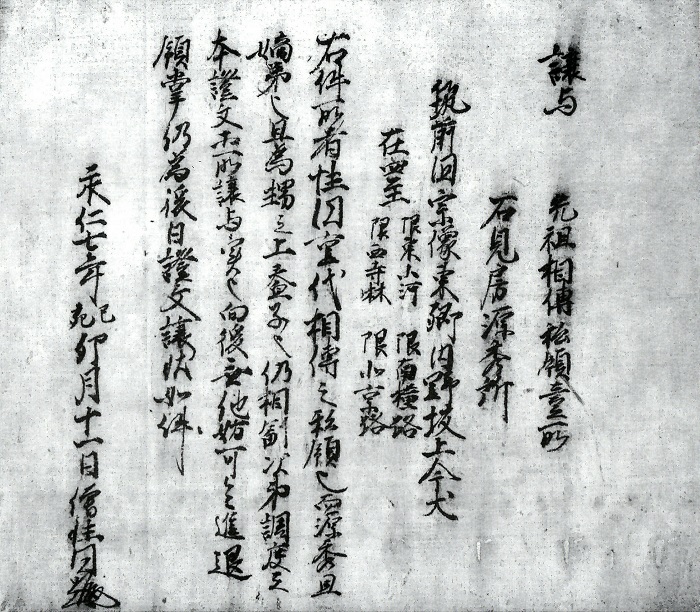 譲与 先祖相傳私領壹所
石見房源秀所
筑前国宗像東郷内野坂上今犬
在四至 限東小河 限南横路
限西寺林 限北京路
右件所者性因重代相傳之私領也而源秀且
嫡弟也且為甥之上養子也仍相副次第調度之
本證文等所譲与実也向後無他妨可令進退
領掌仍為後日證文譲状如件
承仁七年己卯月十一日僧性因